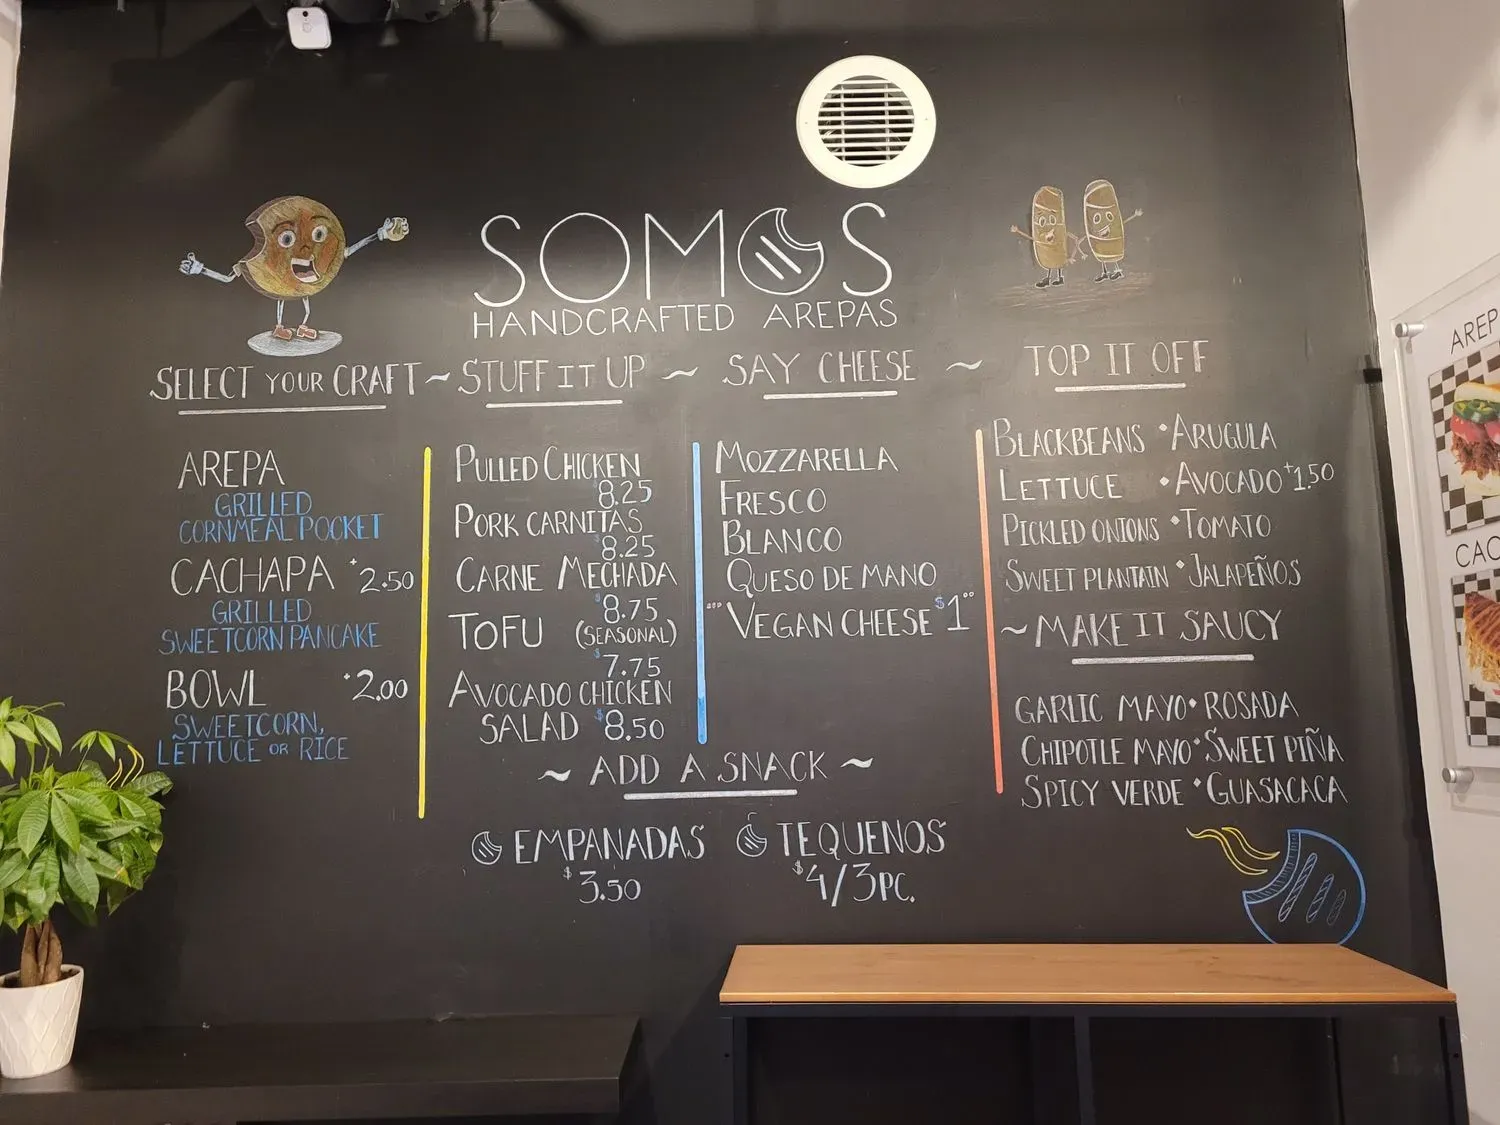 SOMOS
HANDCRAFTED AREPAS
SELECT YOUR CRAFT ~ STUFF IT UP ~ SAY CHEESE ~ TOP IT OFF
AREPA
GRILLED
CORNMEAL POCKET
CACHAPA +2.50
GRILLED
SWEETCORN PANCAKE
BOWL +2.00
SWEETCORN,
LETTUCE OR RICE
PULLED CHICKEN
8.25
PORK CARNITAS
$8.25
CARNE MECHADA
$8.75
TOFU (SEASONAL)
$7.75
AVOCADO CHICKEN
SALAD $8.50
MOZZARELLA
FRESCO
BLANCO
QUESO DE MANO
VEGAN CHEESE $1
BLACKBEANS • ARUGULA
LETTUCE • AVOCADO +1.50
PICKLED ONIONS • TOMATO
SWEET PLANTAIN • JALAPEÑOS
~ MAKE IT SAUCY
GARLIC MAYO • ROSADA
CHIPOTLE MAYO • SWEET PIÑA
SPICY VERDE • GUASACACA
~ ADD A SNACK ~
EMPANADAS
$3.50
TEQUENOS
$4/3PC.
AREP
CAC